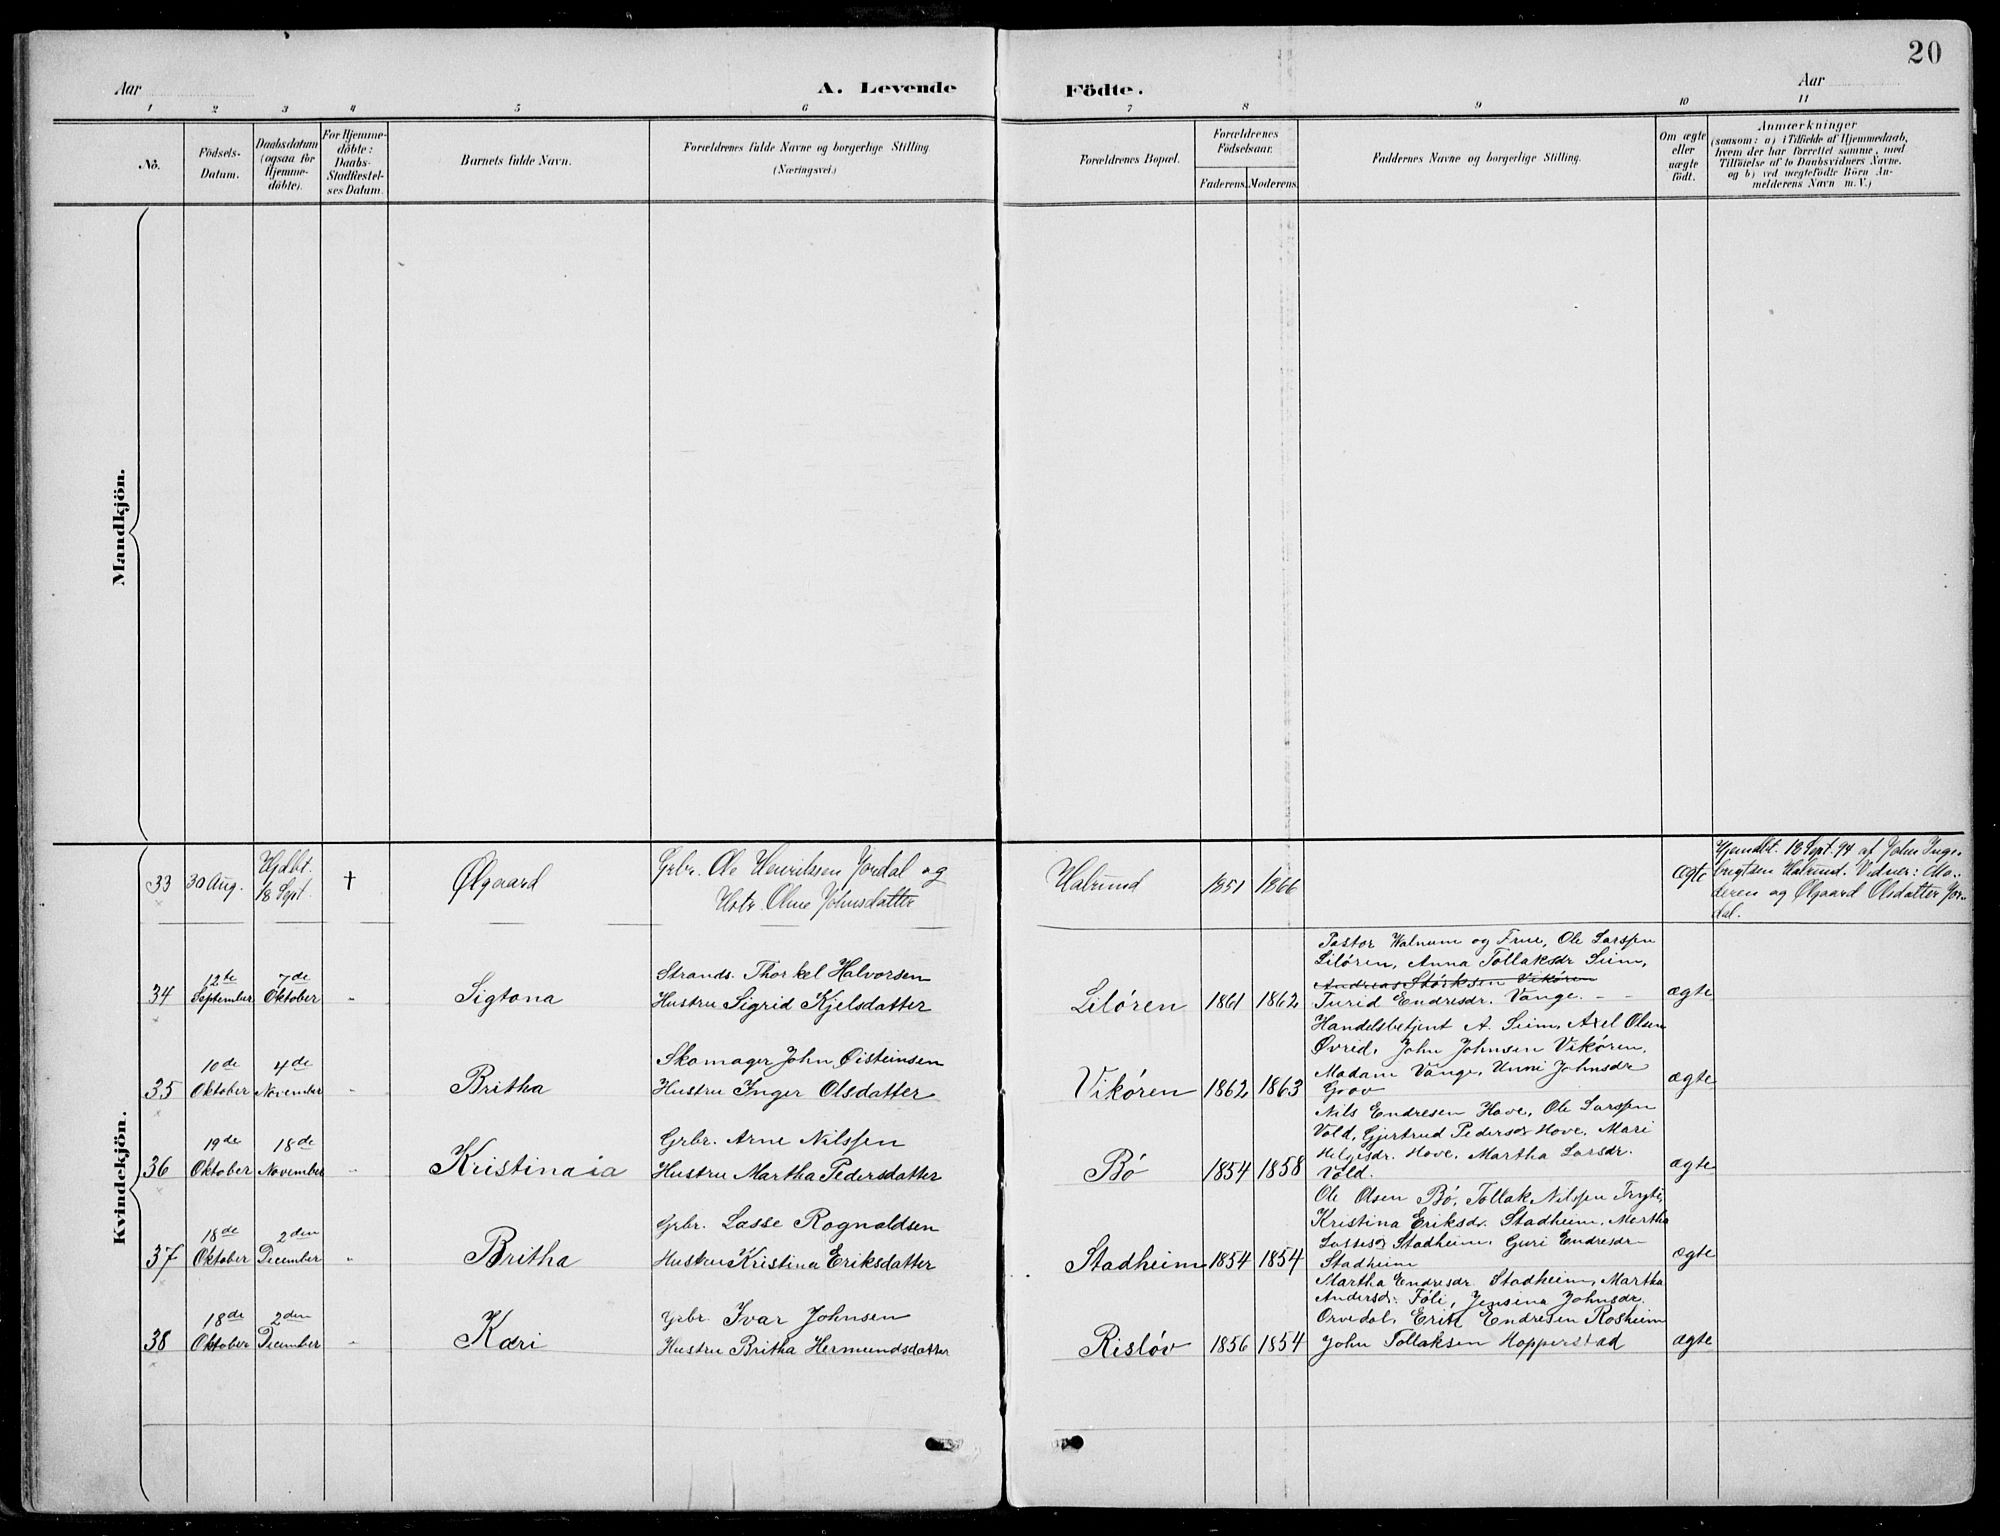 20
Aar
A. Levende
Födte.
Aar
1 2 3 4 5 6 7 8 9 10 11
Nö.
Födsels-
Datum.
Daabsdatum
(ogsaa for
Hjemme-
döbte).
For Hjemme-
döbte:
Daabs-
Stadfestel-
ses Datum.
Barnets fulde Navn.
Forældrenes fulde Navne og borgerlige Stilling
(Næringsvei.)
Forældrenes Bopæl.
Forældrenes
Födselsaar.
Faderens.
Moderens.
Faddernes Navne og borgerlige Stilling.
Om ægte
eller
uægte
födt.
Anmærkninger
(saasom: a) i Tilfælde af Hjemmedaab,
hvem der har forrettet samme, med
Tilföielse af to Daabsvidners Navne.
og b) ved uægtefödte Börn An-
melderens Navn m. V.)
Mandkjön.
Kvindekjön.
33
30 Aug.
Hjdbt.
18 Sept.
†
Ølgaard
Grbr. Ole Henrikssen Jordal og
Hstr. Oline Johnsdatter
Halrund
1851
1866
ægte
Hjemdbt. 18 Sept. 94 af John Inge-
brigtsen Halrund. Vidner: Mo-
deren og Ølgaard Olsdatter Jor-
dal.
34
12te
September
7de
Oktober
"
Sigtona
Strands. Thorkel Halvorsen
Hustru Sigrid Kjelsdatter
Liløren
1861
1862
Pastor Walnum og Frue, Ole Larssen
Liløren, Anna Tollaksdr Seim,
Andreas Størksen Vikøren
Turid Endresdr. Vange. - -
ægte
35
10de
Oktober
4de
November
"
Britha
Skomager John Øisteinsen
Hustru Inger Olsdatter
Vikøren
1862
1863
Handelsbetjent A. Seim, Axel Olsen
Øvrid, John Johnsen Vikøren,
Madam Vange, Unni Johnsdr
Grov
ægte
36
19de
Oktober
18de
November
"
Kristinaia
Grbr. Arne Nilssen
Hustru Martha Pedersdatter
Bø
1854
1858
Nils Endresen Hove, Ole Larssen
Vold, Gjertrud Pedersdr Hove, Mari
Helgesdr. Hove, Martha Larsdr.
Vold.
ægte
37
18de
Oktober
2den
December
"
Britha
Grbr. Lasse Rognaldsen
Hustru Kristina Eriksdatter
Stadheim
1854
1854
Ole Olsen Bø, Tollak Nilssen Tryti,
Kristina Eriksdr. Stadheim, Martha
Lassesdr Stadheim, Guri Endresdr
Stadheim
ægte
38
18de
Oktober
2den
December
"
Kari
Grbr. Ivar Johnsen
Hustru Britha Hermundsdatter
Risløv
1856
1854
Martha Endresdr. Stadheim, Martha
Andersdr. Føli, Jensina Johnsdr.
Orvedal, Erik Endresen Rosheim
John Tollaksen Hopperstad
ægte